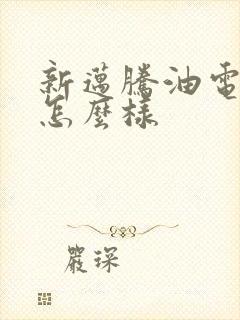 新邁騰油電
怎麼樣
嚴琛